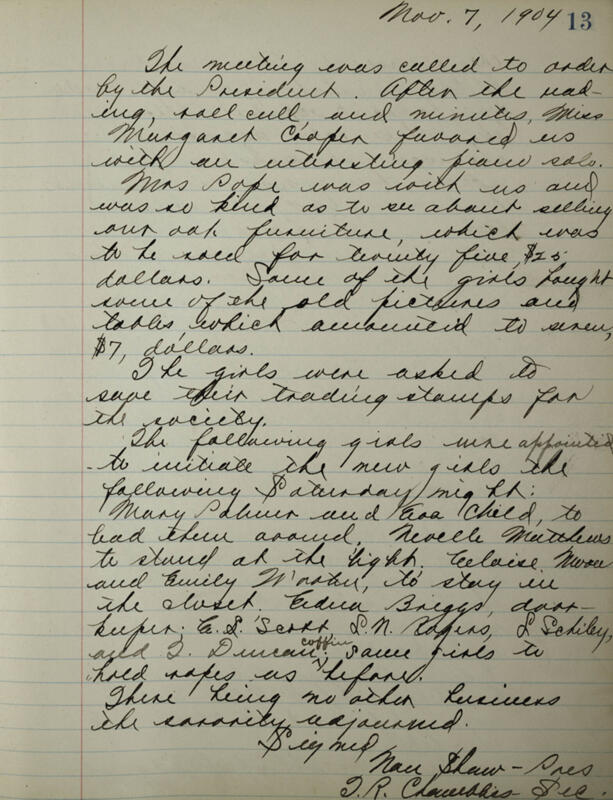 Nov. 7, 1904 13
The meeting was called to order
by the President. After the read-
ing, roll call, and minutes, Miss
Margaret Cooper favored us
with an interesting piano solo.
Mrs Pope was with us and
was so kind as to see about selling
our oak furniture, which was
to be sold for twenty five, $25
dollars. Some of the girls bought
some of the old pictures and
tables which amounted to seven,
$7, dollars.
The girls were asked to
save their trading stamps for
the society.
The following girls were appointed
to initiate the new girls the
following Saturday night:
Mary Palmer and Eva Child, to
lead them around. Nevelle Matthews
to stand at the light. Eeloise
and Emily Wooten, to stay in
the closet. Edna Briggs, door-
keeper; E. S. Scott L. N. Rogers, L Schley,
coffin
and I. Duncan; Same girls to
hold ropes as before.
There being no other business
the sorority adjourned.
Signed
Nan Shaw - Pres
Sec.